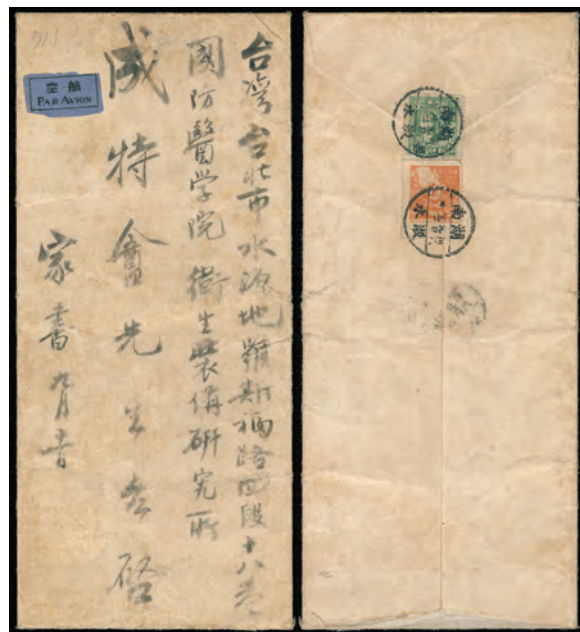 航空
PAR AVION
台灣台北市水源地羅斯福路四段十八巷
國防醫学院衛生裝備研究所
成特 先生台啓
家書 九月
湖南
湖南